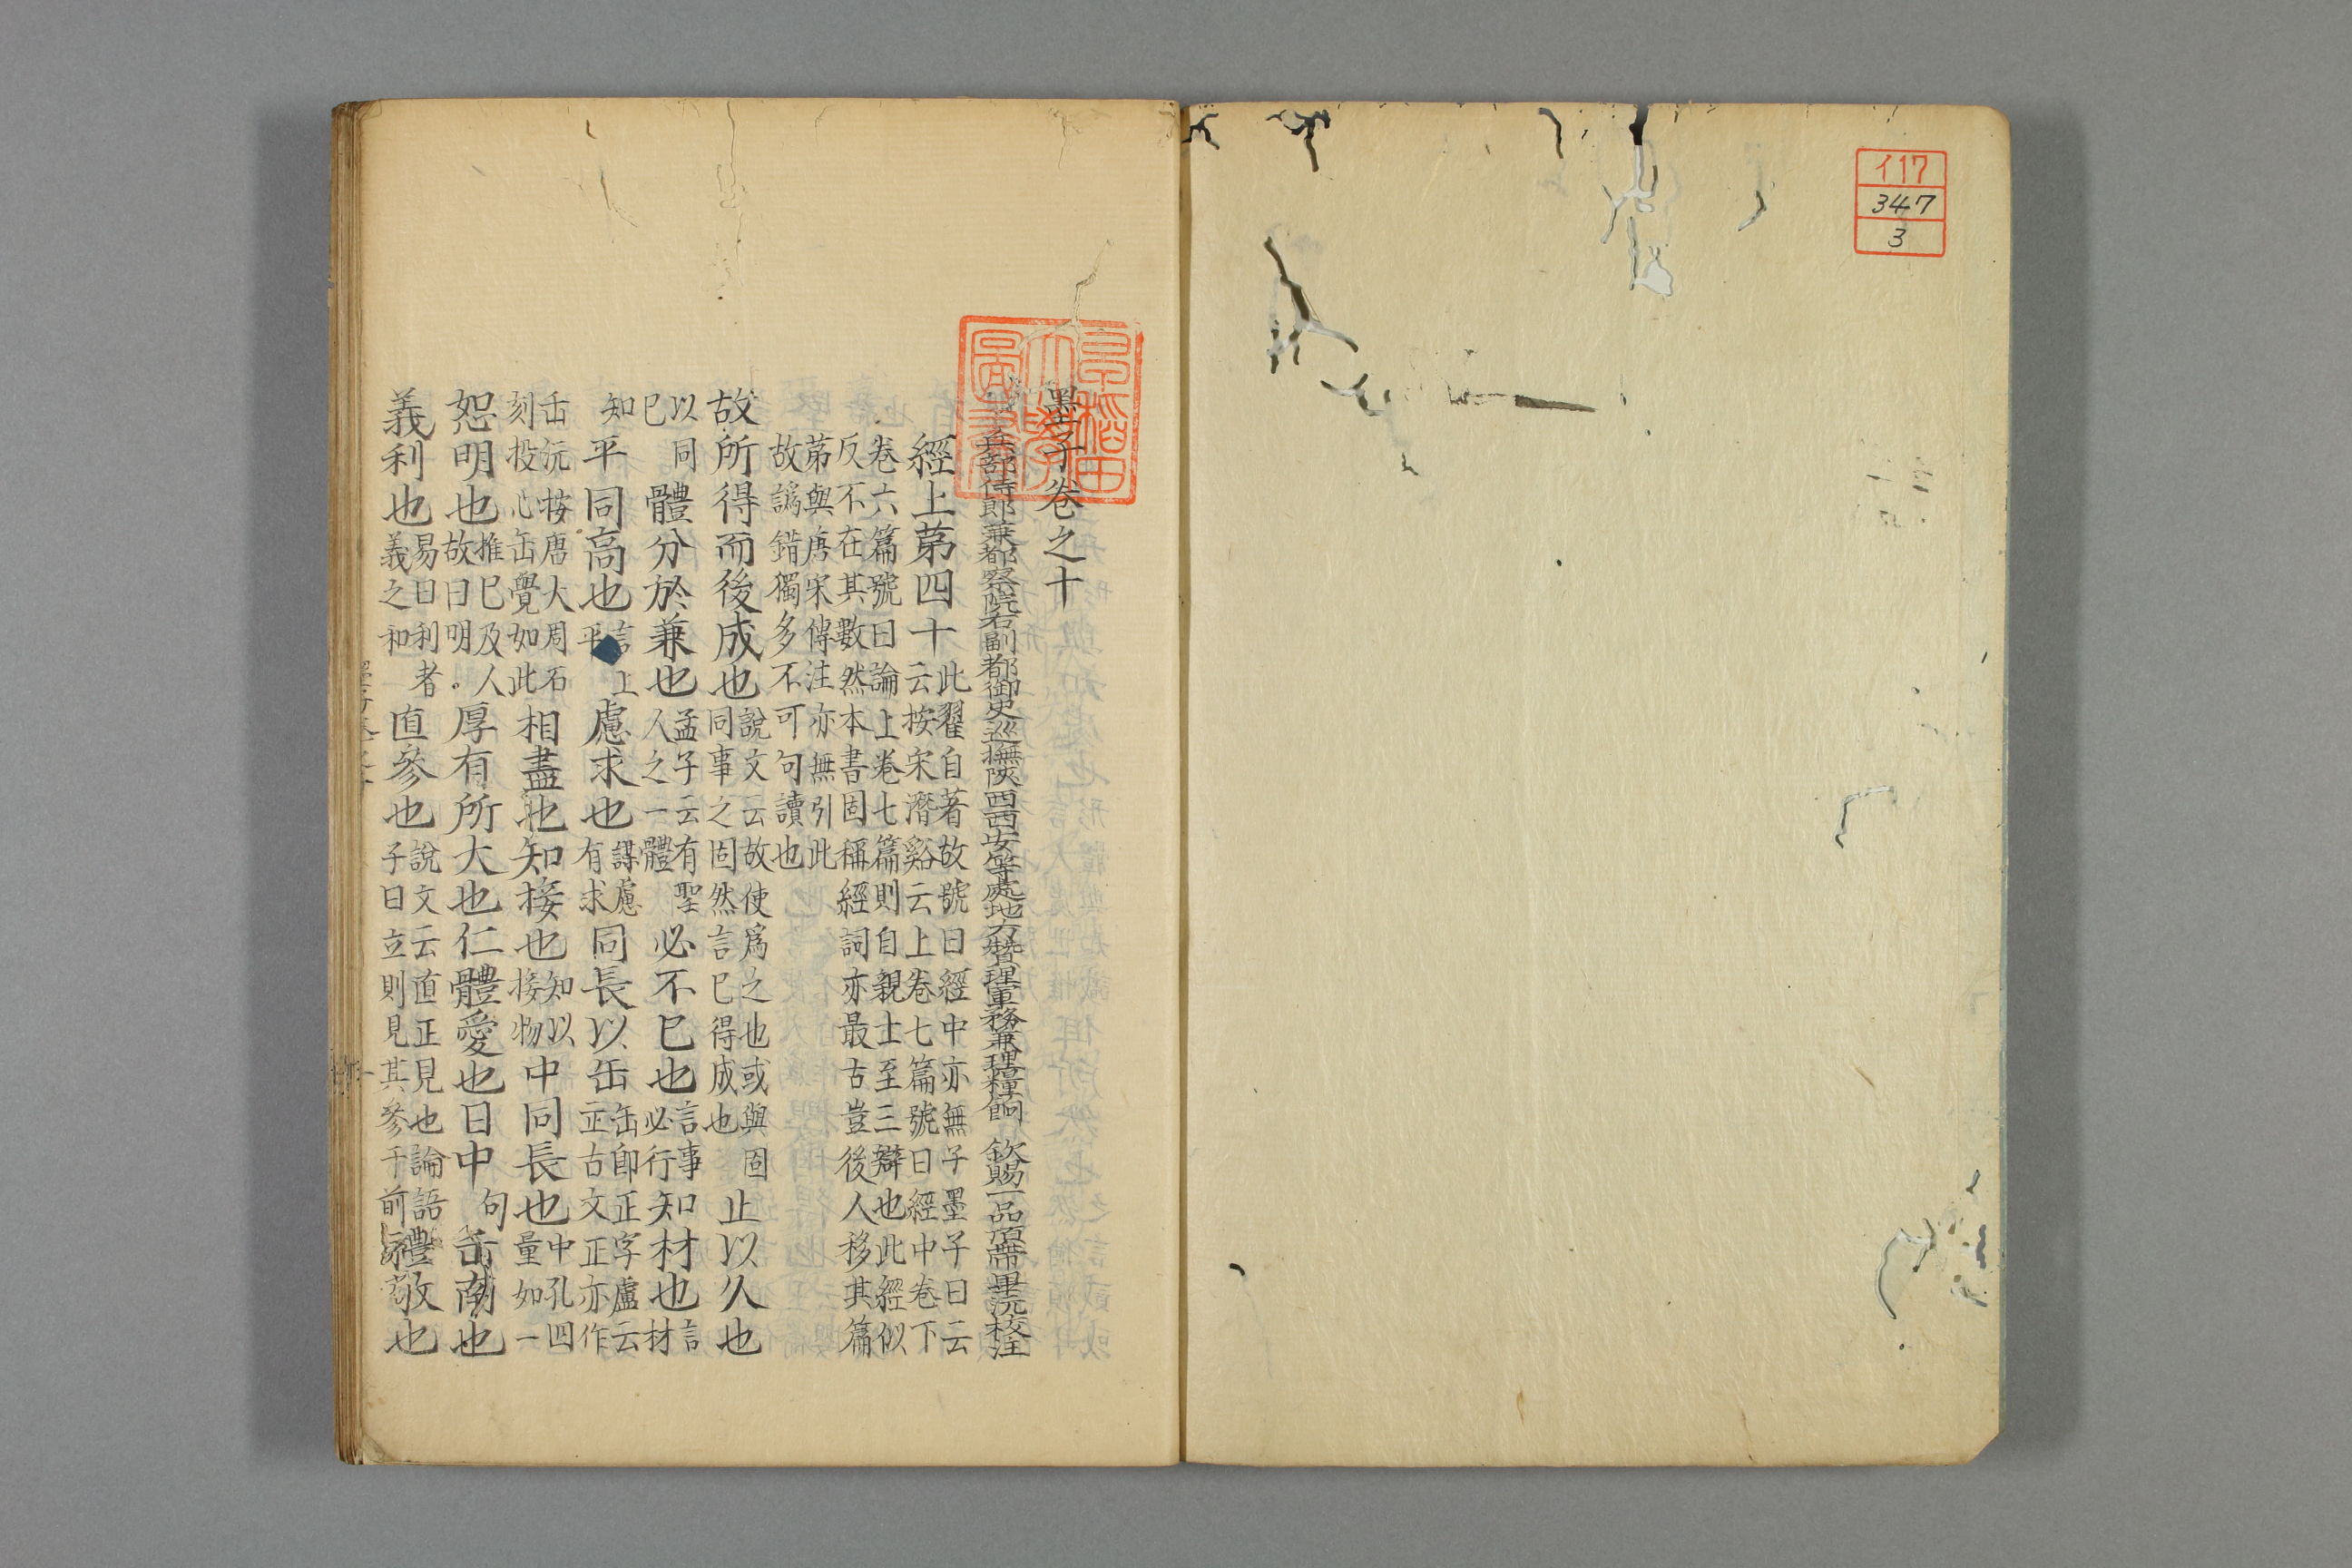 イ17
347
3
早稲田大學圖書
墨子卷之十
兵部侍郎兼都察院右副都御史巡撫陝西西安等處地方贊理軍務兼理糧餉 欽賜一品頂帶畢沅校注
經上第四十 此翟自著故號曰經中亦無子墨子曰云云按宋潛谿云上卷七篇號曰經中卷下
卷六篇號曰論上卷七篇則自親士至三辯也此經似反不在其數然本書固稱經詞亦最古豈後人移其篇
第與唐宋傳注亦無引此故譌錯獨多不可句讀也
故所得而後成也 說文云故使爲之也或與固同事之固然言已得成也 止以久也
以同已 體分於兼也 孟子云有聖人之一體 必不已也 言事必行 知材也 言材
知 平同高也 言上平 慮求也 謀慮有求 同長以缶 缶即正字盧云正古文正亦作
缶沅按唐大周石刻投心缶覺如此 相盡也知接也 知以接物 中同長也 中孔四量如一
恕明也 推已及人故曰明。 厚有所大也仁體愛也日中 句 缶南也
義利也 易曰利者義之和 直參也 說文云直正見也論語子曰立則見其參于前 禮敬也